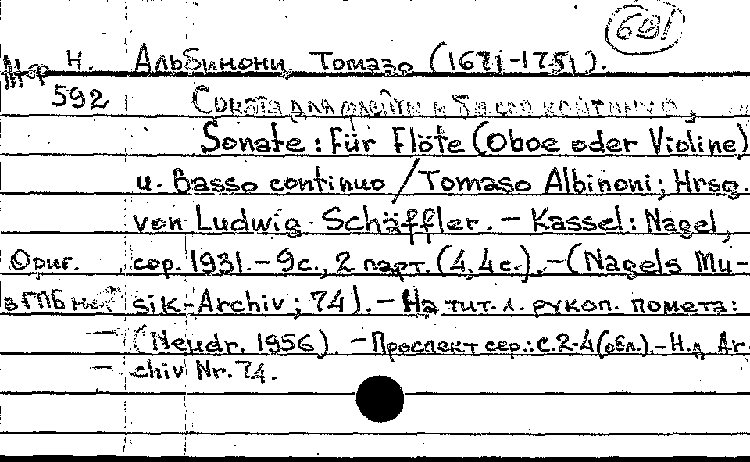 681
Н. Альбинони, Томазо (1671-1751).
592 Соната для флейты и баса континуо,
Sonate : Für Flöte (Oboe oder Violine)
u. Basso continuo / Tomaso Albinoni; Hrsg.
von Ludwig Schäffler. – Kassel: Nagel,
Ориг. cop. 1931. – 9с., 2 парт. (4,4с.). – (Nagels Mu-
в ГПБ нет sik-Archiv ; 74). – На тит. л. рукоп. помета:
– (Neudr. 1956). – Проспект сер.: с. 2-4 (обл.). – Н.д. Ar-
– chiv Nr. 74.